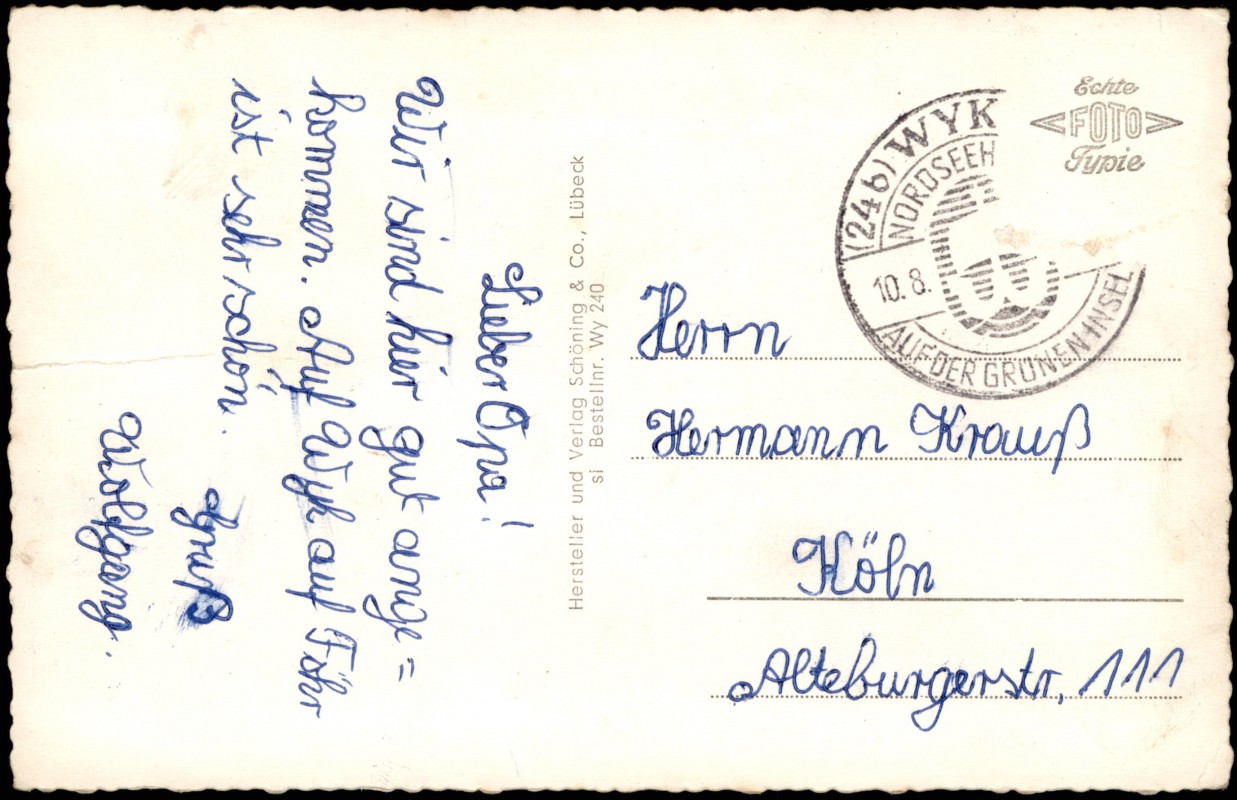 Lieber Opa!
Wir sind hier gut ange=
kommen. Auf Wyk auf Föhr
ist sehr schön.
Gruß
Wolfgang.
Hersteller und Verlag Schöning & Co., Lübeck
si Bestellnr. Wy 240
Echte
FOTO
Typie
(24b) WYK
NORDSEEH
10.8.
AUF DER GRÜNEN INSEL
Herrn
Hermann Krauß
Köln
Alteburgerstr. 111